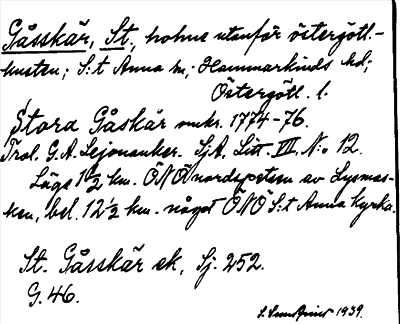 Gåsskär, St., holme utanför östergötl.-
kusten; S:t Anna sn, Hammarkinds hd,
Östergötl. l.
Stora Gåskär omkr. 1774-76.
Trol. G.A. Lejonanker. SjA, Litt VII, N:o 12.
Läge 1 1/2 km. ÖNÖ nordspetsen av Lysmas-
ken, bel. 12 1/2 km. något ÖNÖ S:t Anna kyrka.
St. Gåsskär ek, Sj. 252.
G. 46.
1939.